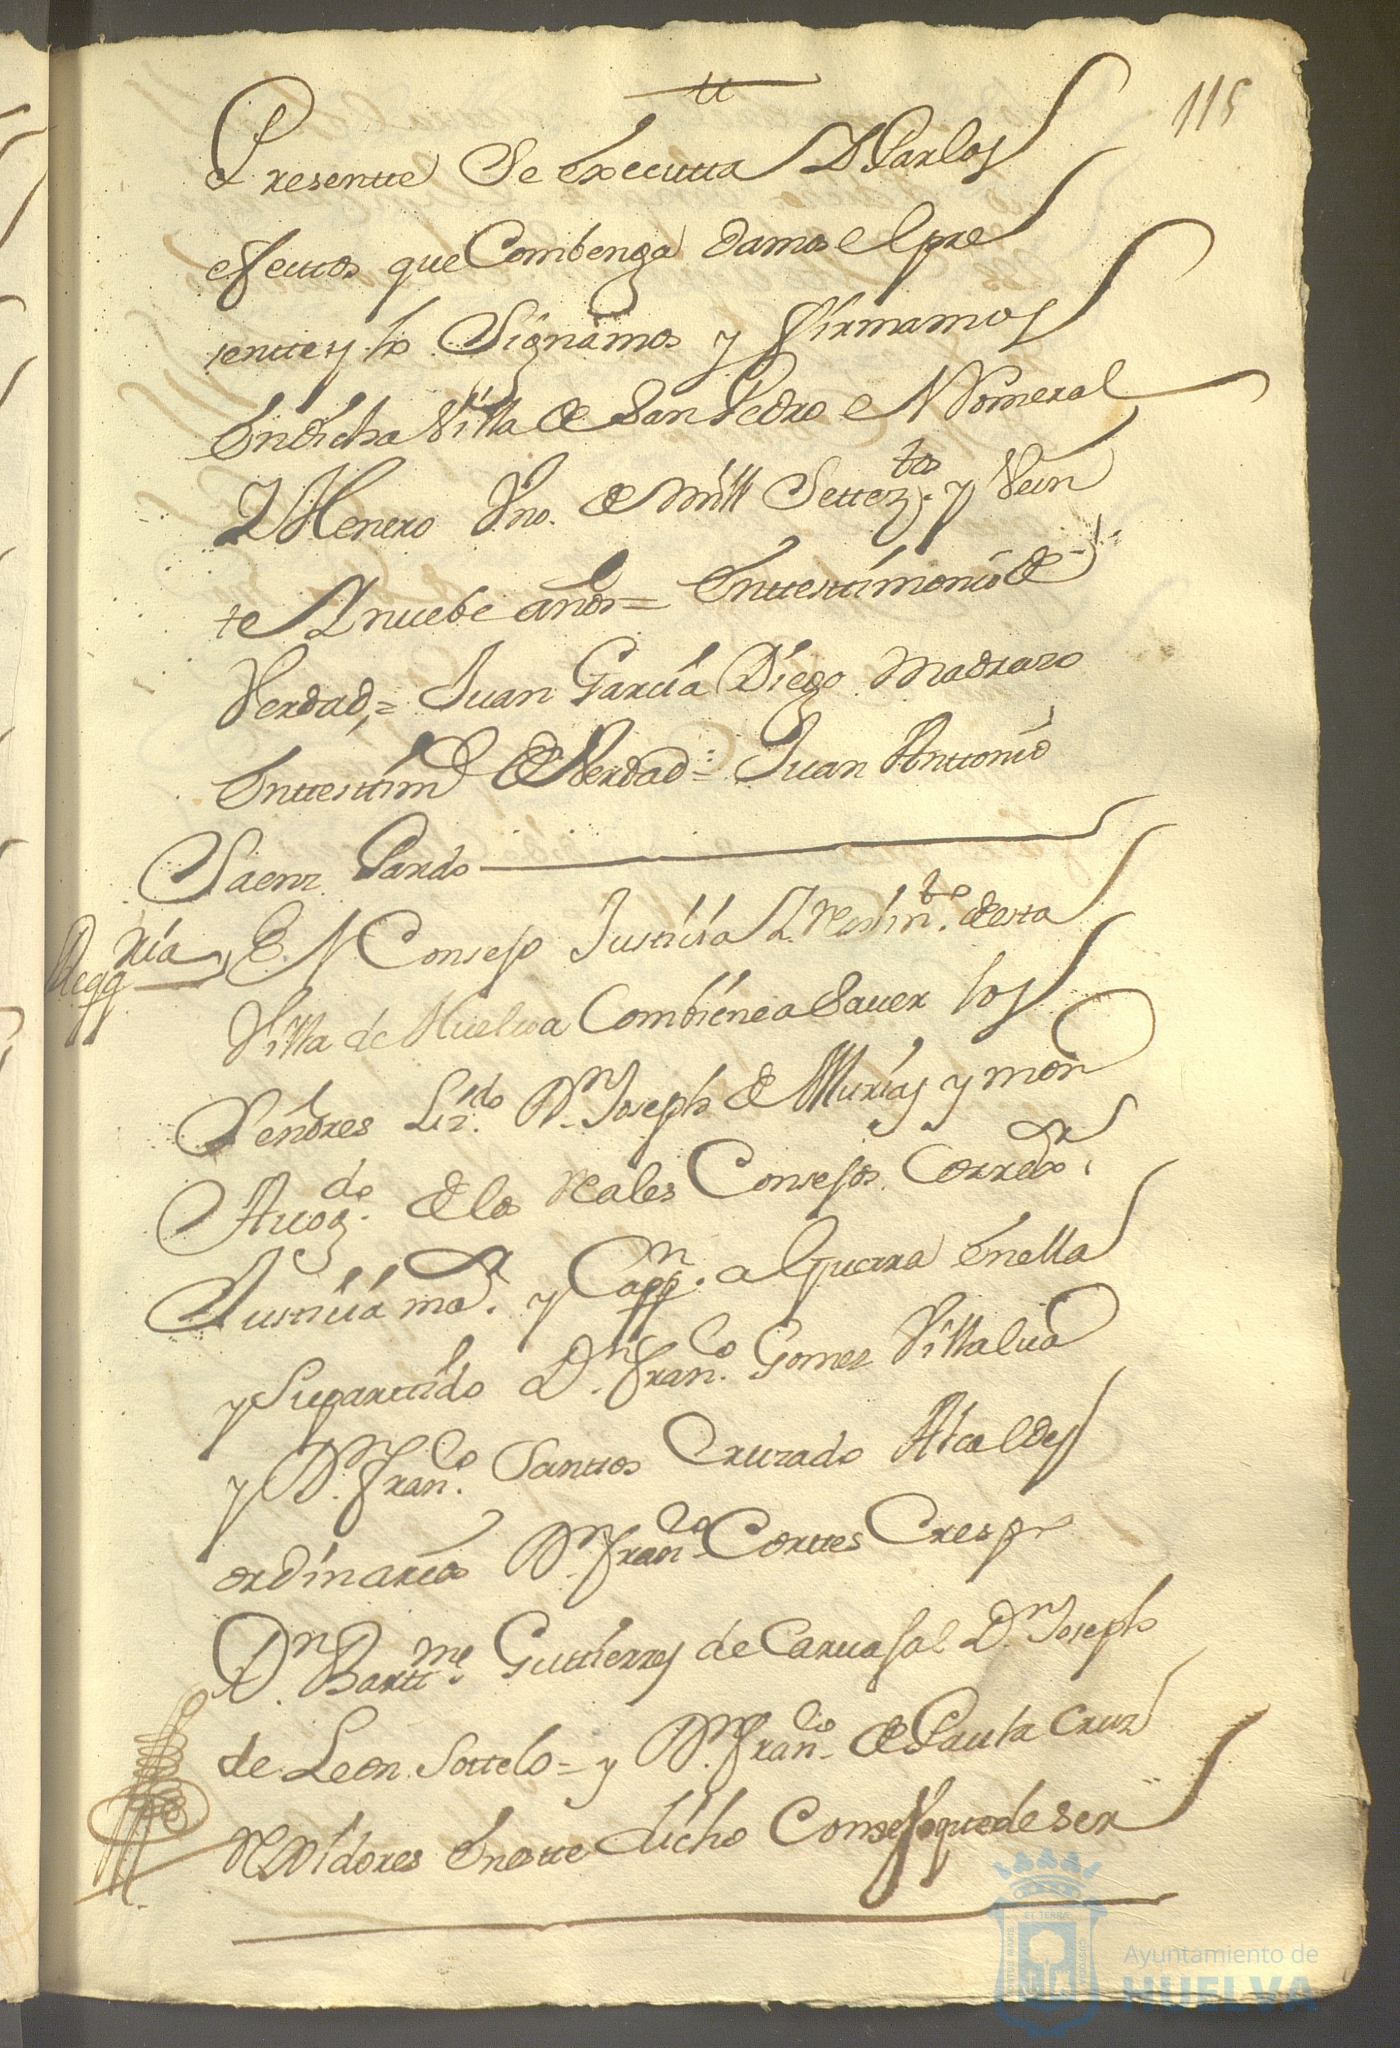 115
Presentte Se Executta Y Parlos
efecttos que Combenga damos el pre
sentte y lo Signamos y firmamos
En dicha Villa de San Pedro el Romeral
Y Henero Vno. de mill Settez.tos y Vein
te Y nuebe años = En ttesttimonio de
Verdad, = Juan Garcia Diego Madrazo
En ttesttim.o de Verdad = Juan Anttonio
Saenz Pardo
Reqq.ria
El Consejo Justicia Y Rejim.to desta
Villa de Huelva Combiene a Saver los
Señores Liz.do D.n Joseph de Murias y mon
Avog.do de los Reales Consejos Corred.r
Justicia ma.r y Capp.n a Guerra En ella
y Su partido D.n Fran.co Gomez Villalva
y D.n Fran.co Santtos Cruzado Alcaldes
ordinarios D.n Fran.co Corttes Crespo
D.n Bartt.me Guttierres de Carvajal D.n Joseph
de Leon Sottelo = y D.n Fran.co de Paula Cruz
Rexidores En estte dicho Consejo que de Ser
Ayuntamiento de
HUELVA